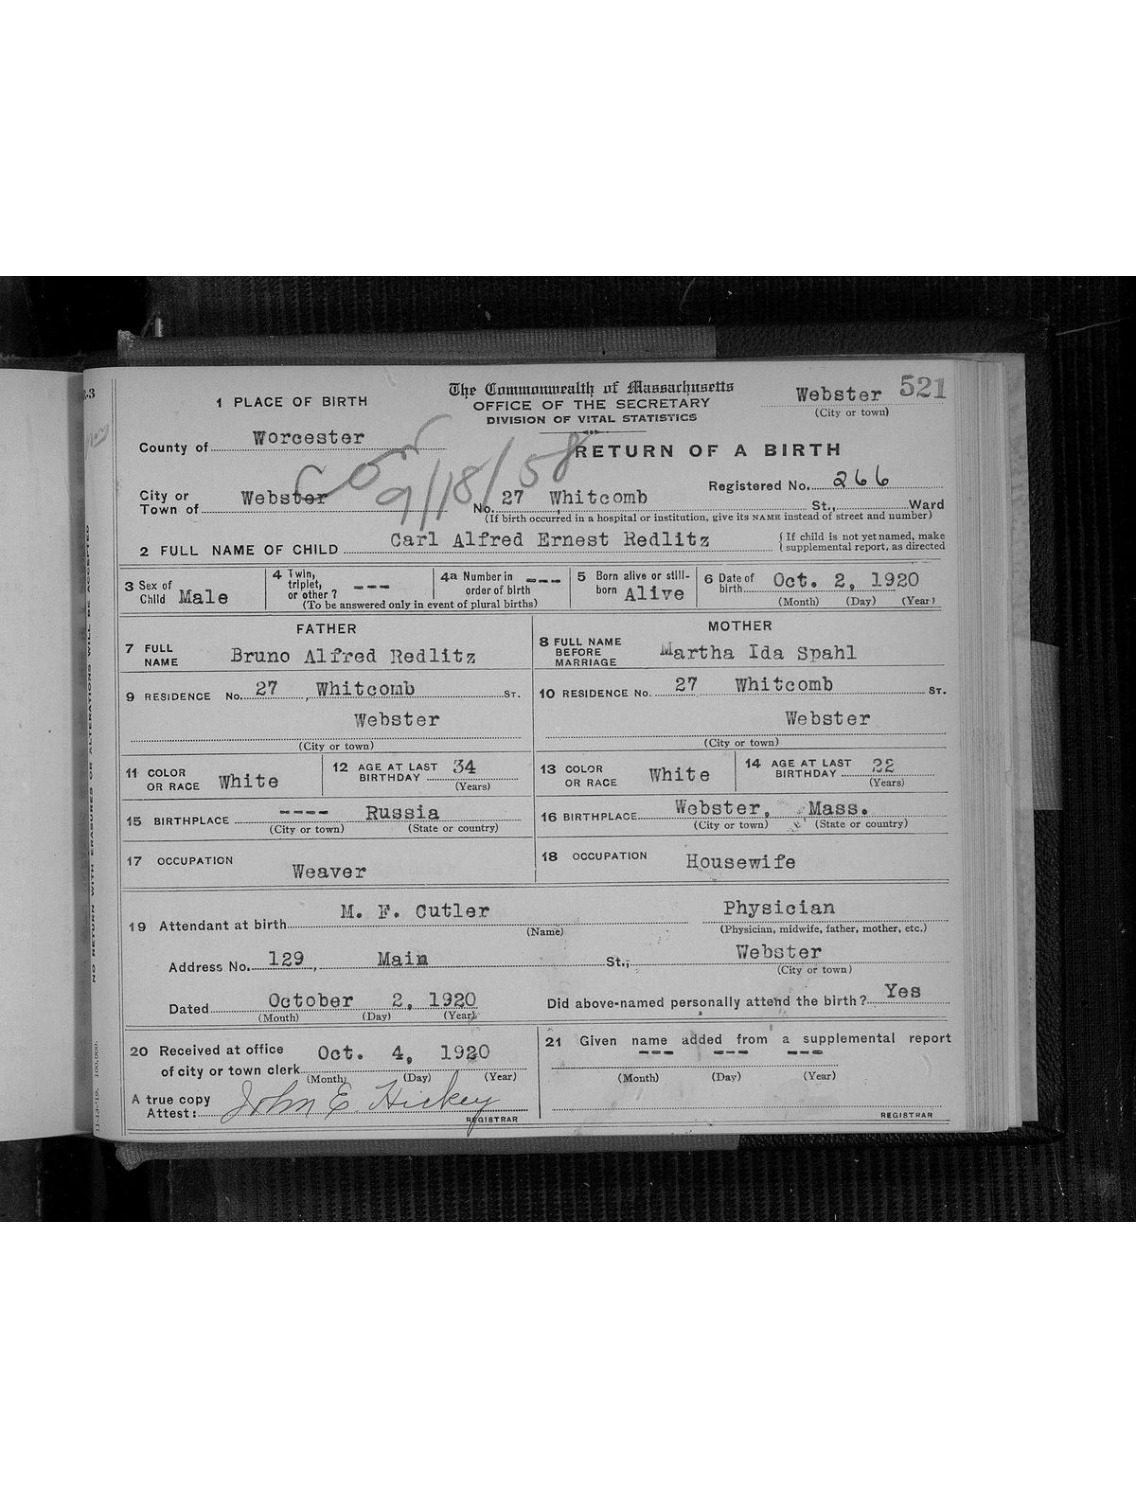 The Commonwealth of Massachusetts
OFFICE OF THE SECRETARY
DIVISION OF VITAL STATISTICS
Webster 521
(City or town)
1 PLACE OF BIRTH
County of Worcester
RETURN OF A BIRTH
9/18/58
Registered No. 266
City or Town of Webster No. 27 Whitcomb St., Ward
(If birth occurred in a hospital or institution, give its NAME instead of street and number)
2 FULL NAME OF CHILD Carl Alfred Ernest Redlitz { If child is not yet named, make supplemental report, as directed
3 Sex of Child Male
4 Twin, triplet, or other? ---
4a Number in order of birth ---
(To be answered only in event of plural births)
5 Born alive or still-born Alive
6 Date of birth Oct. 2, 1920
(Month) (Day) (Year)
FATHER
7 FULL NAME Bruno Alfred Redlitz
9 RESIDENCE No. 27, Whitcomb ST.
Webster
(City or town)
11 COLOR OR RACE White
12 AGE AT LAST BIRTHDAY 34
(Years)
15 BIRTHPLACE ---- Russia
(City or town) (State or country)
17 OCCUPATION
Weaver
MOTHER
8 FULL NAME BEFORE MARRIAGE Martha Ida Spahl
10 RESIDENCE No. 27 Whitcomb ST.
Webster
(City or town)
13 COLOR OR RACE White
14 AGE AT LAST BIRTHDAY 22
(Years)
16 BIRTHPLACE Webster, Mass.
(City or town) (State or country)
18 OCCUPATION Housewife
19 Attendant at birth M. F. Cutler Physician
(Name) (Physician, midwife, father, mother, etc.)
Address No. 129, Main St., Webster
(City or town)
Dated October 2, 1920
(Month) (Day) (Year)
Did above-named personally attend the birth? Yes
20 Received at office of city or town clerk Oct. 4, 1920
(Month) (Day) (Year)
A true copy
Attest: John E Hickey
REGISTRAR
21 Given name added from a supplemental report
--- --- ---
(Month) (Day) (Year)
REGISTRAR
NO RETURN WITH ERASURES OR ALTERATIONS WILL BE ACCEPTED